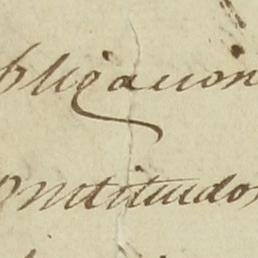 obligacion
constituidos